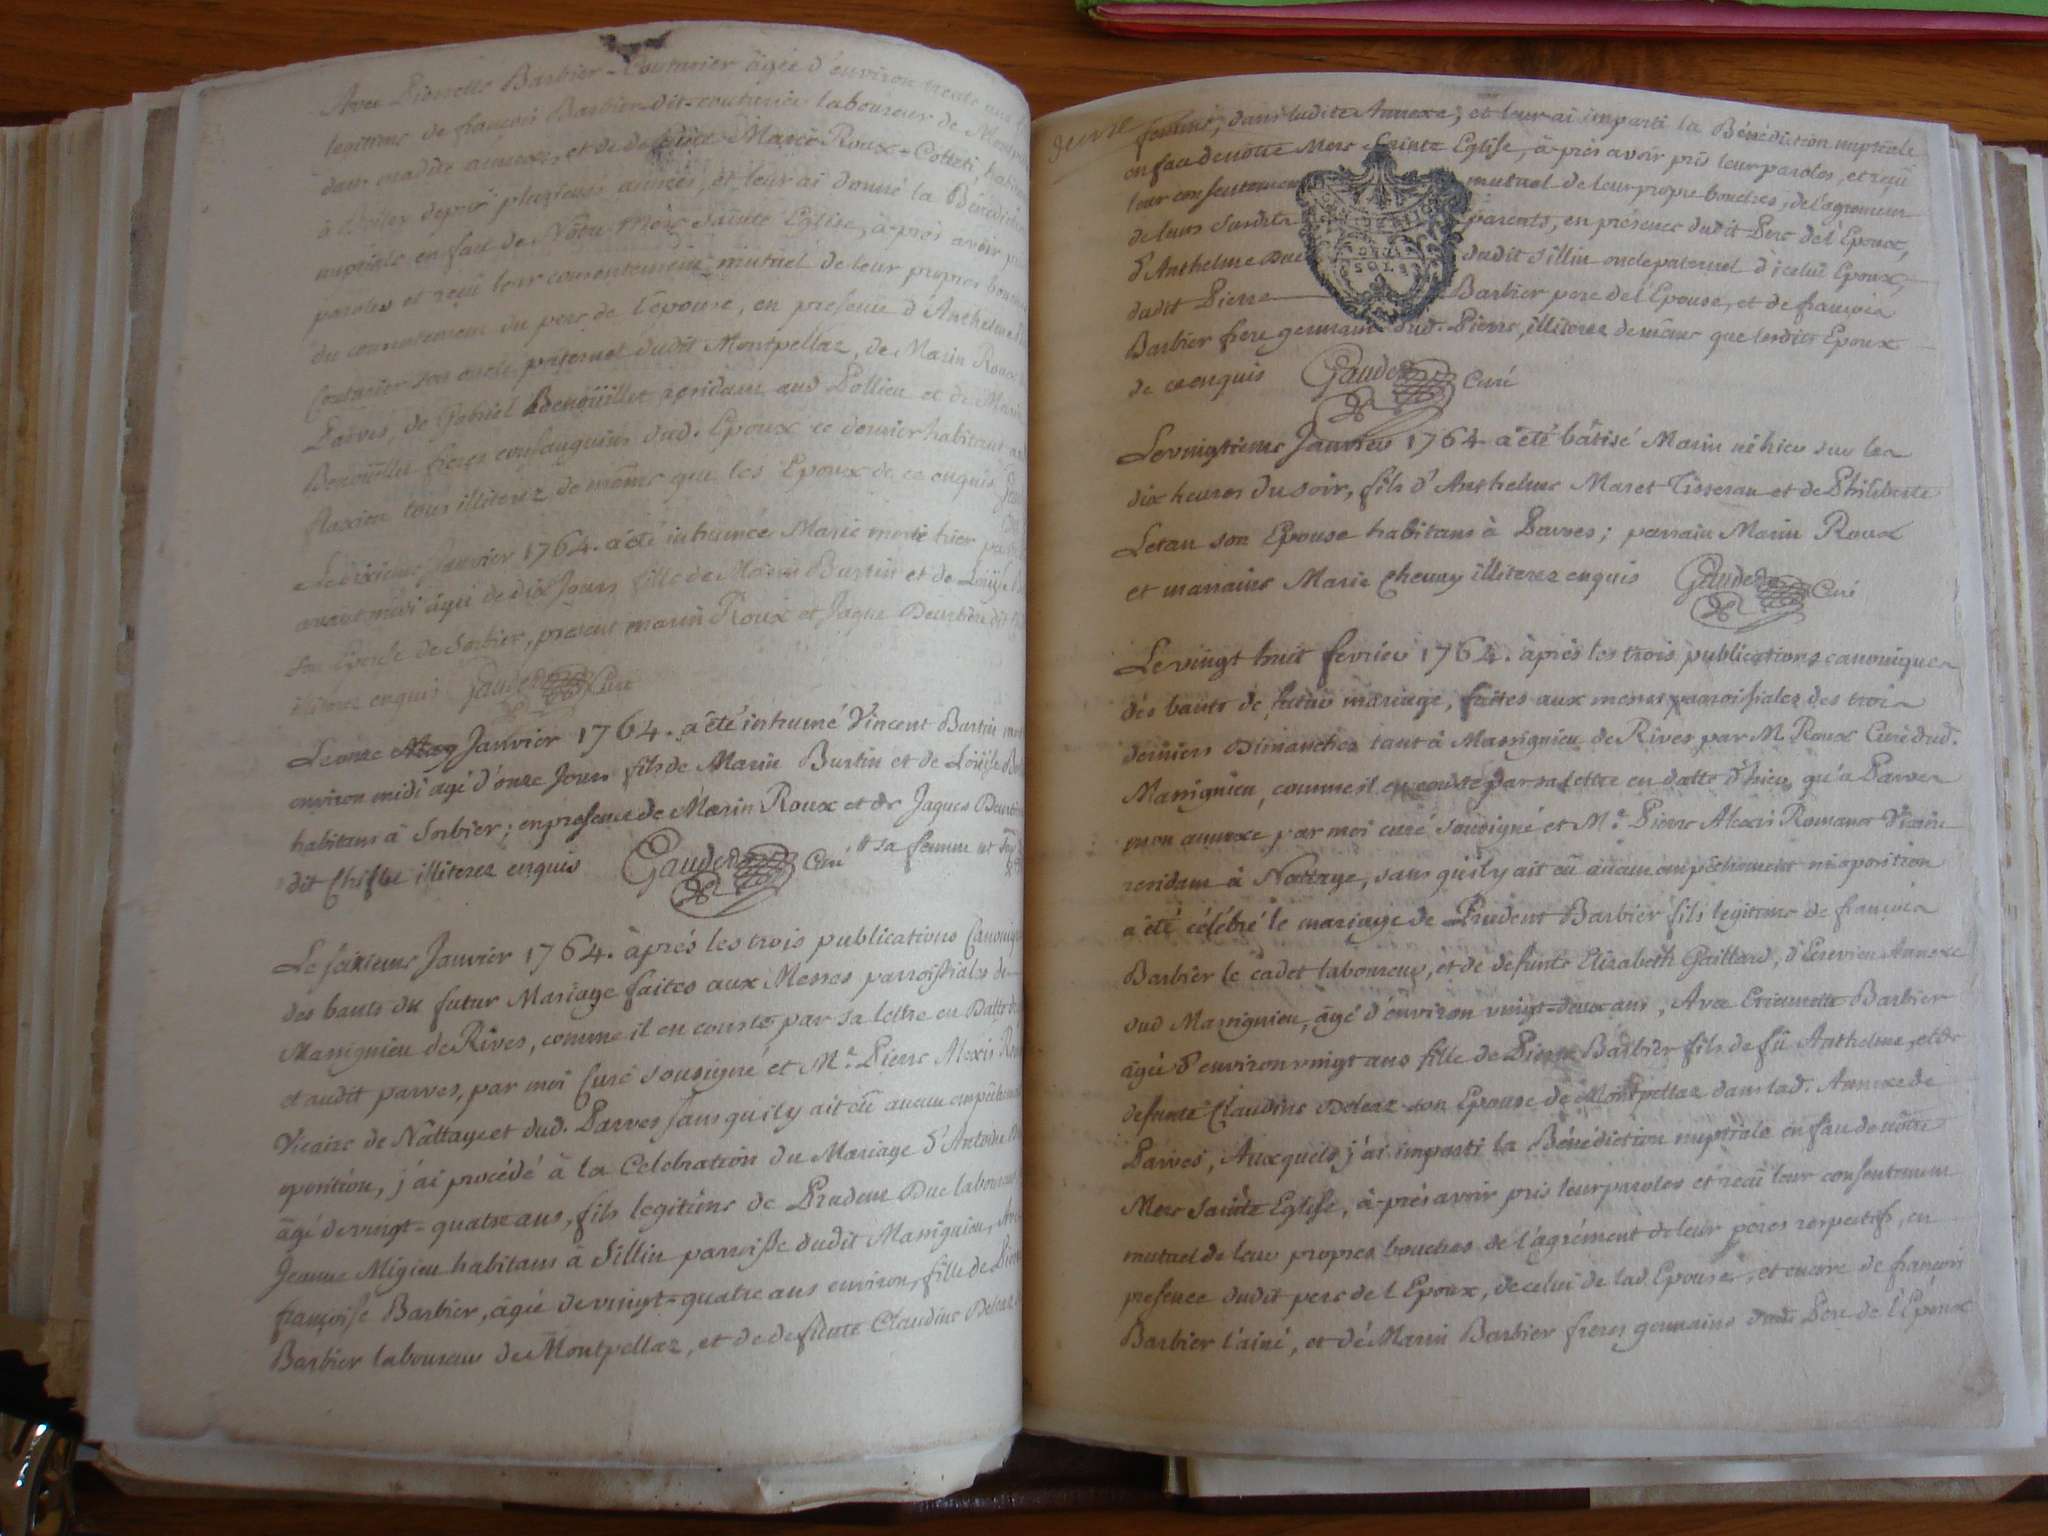 Avec Pierrette Barbier-Couturier âgée d'environ trente ans
legitime de françois Barbier-dit-couturier laboureur de
dans madite annexe, et de defunte Marie Roux-Colleti,
depuis plusieurs années, et leur ai donné la Bénédiction
nuptiale en face de Nôtre Mere Sainte Eglise, à-prés avoir pris
paroles et reçu leur consentement mutuel de leur propres bouches
du consentement du pere de l'épouse, en presence d'Anthelme
Couturier son oncle paternel dudit Montpellaz, de Marin Roux
Parves, de Gabriel Benoüillet residant aud Pollieu et de Marin
Benoüillet freres consanguins dud. Epoux ce dernier habitant
tous illiterez de même que les Epoux de ce enquis
Le dixieme Janvier 1764. a été inhumée Marie morte hier
avant midi âgée de dix Jours fille de Marin Burtin et de Loüise
son Epouse de Sorbier, présent marin Roux et Jaque
illiterez enquis Gauder Curé
Le onze Janvier 1764. a été inhumé Vincent Burtin mort
environ midi agé d'onze Jours fils de Marin Burtin et de Loüise
habitans à Sorbier; en presence de Marin Roux et de Jaques
dit Chiflu illiterez enquis Gauder Curé # sa femme
Le seizieme Janvier 1764. àprés les trois publications Canoniques
des bants du futur Mariage faites aux Messes parroissiales de
Massignieu de Rives, comme il en conste par sa lettre en Datte
et audit parves, par moi Curé sousigné et Mr. Pierre Alexis
Vicaire de Nattaye et dud. Parves sans quil y ait eû aucun empêchement
oposition, j'ai procédé à la Celebration du Mariage d'Antoine
âgé de vingt-quatre ans, fils legitime de Prudent Duc laboureur
Jeanne Migieu habitans à Sillin parroisse dudit Massignieu, Avec
françoise Barbier, âgée de vingt-quatre ans environ, fille de Pierre
Barbier laboureur de Montpellaz, et de defunte Claudine Delerz
femme, dans ladite Annexe; et leur ai imparti la Bénédiction nuptiale
en face de notre Mere Sainte Eglise, à-prés avoir pris leur paroles, et reçu
leur consentement mutuel de leur propre bouches, de l'agrement
de leurs susdits parents, en présence dudit Pere de l'Epoux,
d'Anthelme Duc dudit Sillin oncle paternel d'icelui Epoux,
dudit Pierre Barbier pere de l'Epouse, et de françois
Barbier frere germain dud. Pierre, illiterez de même que lesdits Epoux
de ce enquis Gauder Curé
Le vingtieme Janvier 1764 a été bâtisé Marin né hier sur les
dix heures du soir, fils d'Anthelme Maret Tisseran et de Philiberte
Letan son Epouse habitans à Parves; parrain Marin Roux
et marraine Marie Chenay illiterez enquis Gauder Curé
Le vingt huit fevrier 1764. àprés les trois publications canoniques
dés bants de futur mariage, faites aux messes paroissiales des trois
derniers Dimanches tant à Massignieu de Rives par M. Roux Curé dud.
Massignieu, comme il en conste par sa lettre en datte d'hier, qu'a Parves
mon annexe par moi curé sousigné et Mr. Pierre Alexis Romanet Vicaire
residant à Nattaye, sans quil y ait eû aucun empêchement ni oposition
a été célébré le mariage de Prudent Barbier fils legitime de françois
Barbier le cadet laboureur, et de defunte Elizabeth Gaillard, d'Ecrevieu Annexe
dud Massignieu, âgé d'environ vingt-deux ans, Avec Etiennette Barbier
agée d'environ vingt ans fille de Pierre Barbier fils de fû Anthelme, et de
defunte Claudine Delerz son Epouse de Montpellaz dans lad. Annexe de
Parves, Auxquels j'ai imparti la Bénédiction nuptiale en face de nôtre
Mere Sainte Eglise, à-prés avoir pris leur paroles et reçû leur consentement
mutuel de leur propres bouches de l'agrément de leur peres respectifs, en
presence dudit pere de l'Epoux, de celui de lad. Epouse, et encore de françois
Barbier l'ainé, et dé Marin Barbier freres germains dudit Pere de l'Epoux